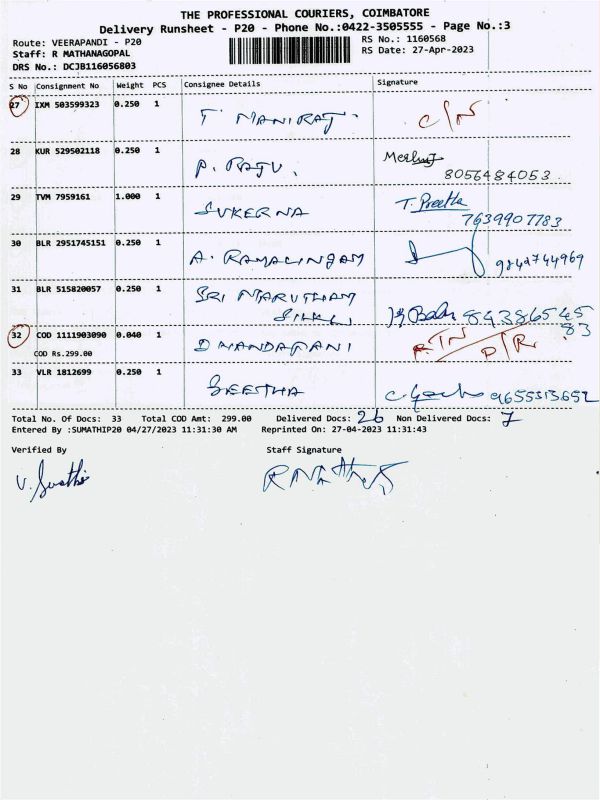 THE PROFESSIONAL COURIERS, COIMBATORE
Delivery Runsheet - P20 - Phone No.:0422-3505555 - Page No.:3
Route: VEERAPANDI - P20
Staff: R MATHANAGOPAL
DRS No.: DCJB116056803
RS No.: 1160568
RS Date: 27-Apr-2023
S No Consignment No Weight PCS Consignee Details Signature
27 IXM 503599323 0.250 1 T. MANIRAJ. C/N
28 KUR 529502118 0.250 1 P. RAJU.
8056484053
29 TVM 7959161 1.000 1 SUKERNA T. Preetha
7639907783
30 BLR 2951745151 0.250 1 A. RAMALINGAM 9842744969
31 BLR 515820057 0.250 1 SRI MARUTHAM
8438654583
32 COD 1111903090 0.040 1 DNANDAPANI RTN
COD Rs.299.00
33 VLR 1812699 0.250 1 GEETHA 9655513652
Total No. Of Docs: 33 Total COD Amt: 299.00 Delivered Docs: 26 Non Delivered Docs: 7
Entered By :SUMATHIP20 04/27/2023 11:31:30 AM Reprinted On: 27-04-2023 11:31:43
Verified By Staff Signature